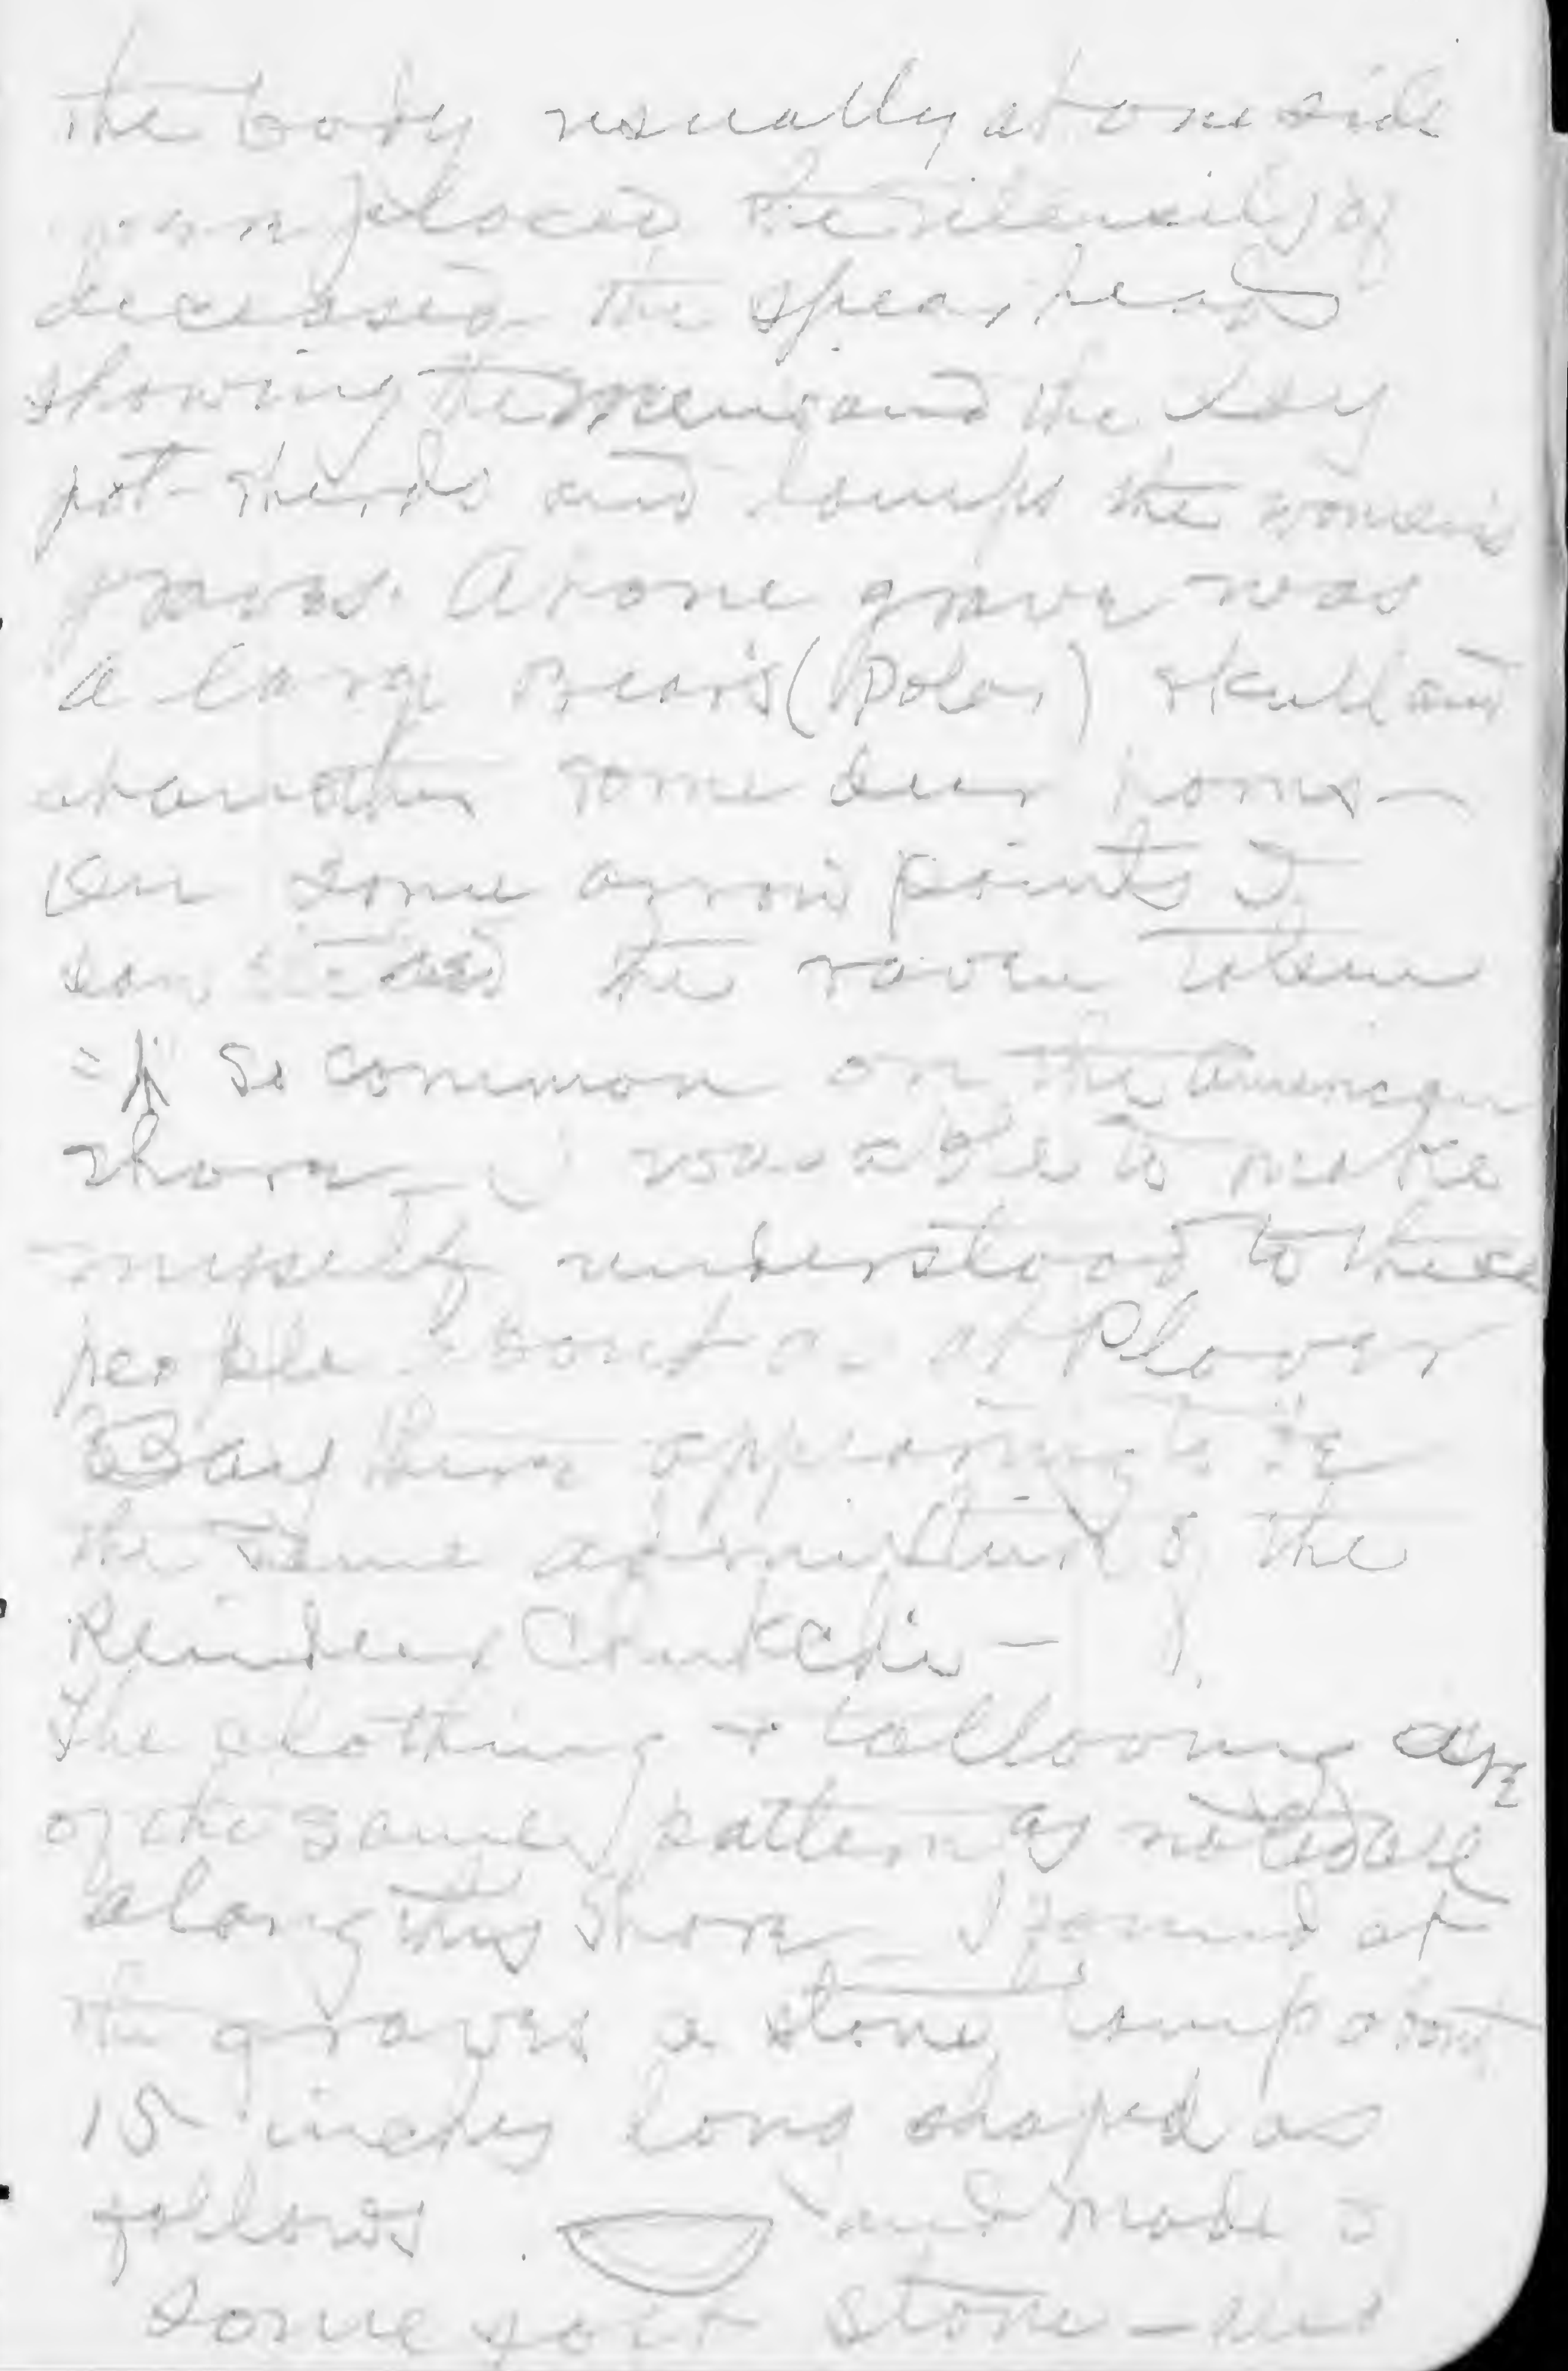 the body usually at one side
were placed the utensils of
deceased the spear heads
showing the mens and the clay
pot-sherds and lamps the women's
graves. At one grave was
a large Bear's (Polar) skull and
at another some deer horns—
on some arrow points I
saw the raven totem
= so common on the American
shore — I was able to make
myself understood to these
people about as at Plover
Bay there appearing to be
the same admixture of the
Reindeer Chukchis —
The clothing + tattooing are
of the same pattern as noted all
along this shore — I found at
the graves a stone lamp about
15 inches long shaped as
follows and made of
some soft stone —